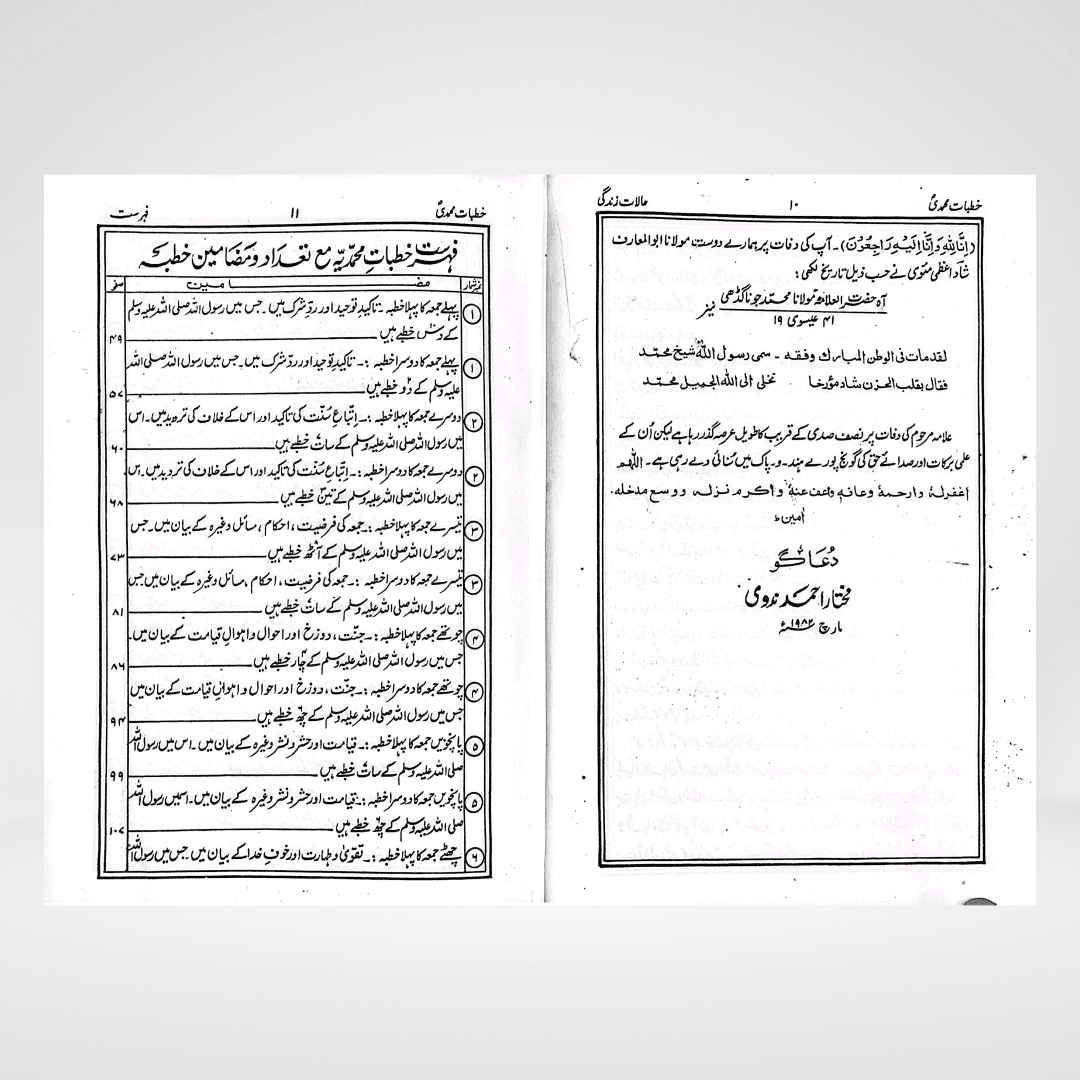 خطبات محمدیؐ
۱۰
حالات زندگی
(اِنَّا لِلّٰهِ وَاِنَّا اِلَيْهِ رَاجِعُوْنَ)۔ آپ کی وفات پر ہمارے دوست مولانا ابو المعارف
شاد اعظمی مئوی نے حسب ذیل تاریخ لکھی:
آہ حضرت العلامہ مولانا محمد جوناگڈھی نیز
۴۱ عیسوی ۱۹
لقد مات فی الوطن المبارک وفقه ۔ سمی رسول اللہ شیخ محمد
فقال بقلب الحزن شاد مؤرخا تخلی الی اللہ الجمیل محمد
علامہ مرحوم کی وفات پر نصف صدی کے قریب کا طویل عرصہ گذر رہا ہے لیکن اُن کے
علمی برکات اور صدائے حق کی گونج پورے ہند۔و۔پاک میں سُنائی دے رہی ہے۔ اللھم
اغفرلہ وارحمہ وعافہ واعف عنہ واکرم نزلہ ووسع مدخلہ۔
اٰمین
دُعا گو
مختار احمد ندوی
مارچ ۱۹۸۲ء
خطبات محمدیؐ
۱۱
فہرست
فہرست خطباتِ محمدیہ مع تعداد و مضامین خطبہ
نمبرشمار مضامین صفحہ
۱ پہلے جمعہ کا پہلا خطبہ ۔ تاکیدِ توحید اور ردِّ شرک میں۔ جس میں رسول اللہ صلی اللہ علیہ وسلم
کے دس خطبے ہیں ۴۹
۱ پہلے جمعہ کا دوسرا خطبہ :۔ تاکیدِ توحید اور ردِّ شرک میں۔ جس میں رسول اللہ صلی اللہ
علیہ وسلم کے دو خطبے ہیں ۵۷
۲ دوسرے جمعہ کا پہلا خطبہ :۔ اِتباعِ سُنّت کی تاکید اور اس کے خلاف کی تردید میں۔ اس
میں رسول اللہ صلی اللہ علیہ وسلم کے سات خطبے ہیں ۶۰
۲ دوسرے جمعہ کا دوسرا خطبہ :۔ اِتباعِ سُنت کی تاکید اور اس کے خلاف کی تردید میں۔ اس
میں رسول اللہ صلی اللہ علیہ وسلم کے تین خطبے ہیں ۶۸
۳ تیسرے جمعہ کا پہلا خطبہ :۔ جمعہ کی فرضیت، احکام، مسائل وغیرہ کے بیان میں۔ جس
میں رسول اللہ صلی اللہ علیہ وسلم کے آٹھ خطبے ہیں ۷۳
۳ تیسرے جمعہ کا دوسرا خطبہ :۔ جمعہ کی فرضیت، احکام، مسائل وغیرہ کے بیان میں جس
میں رسول اللہ صلی اللہ علیہ وسلم کے سات خطبے ہیں ۸۱
۴ چوتھے جمعہ کا پہلا خطبہ :۔ جنّت، دوزخ اور احوال و اہوالِ قیامت کے بیان میں۔
جس میں رسول اللہ صلی اللہ علیہ وسلم کے چار خطبے ہیں ۸۶
۴ چوتھے جمعہ کا دوسرا خطبہ :۔ جنّت، دوزخ اور احوال و اہوالِ قیامت کے بیان میں
جس میں رسول اللہ صلی اللہ علیہ وسلم کے چھ خطبے ہیں ۹۴
۵ پانچویں جمعہ کا پہلا خطبہ :۔ قیامت اور حشر و نشر وغیرہ کے بیان میں۔ اس میں رسول اللہ
صلی اللہ علیہ وسلم کے سات خطبے ہیں ۹۹
۵ پانچویں جمعہ کا دوسرا خطبہ :۔ قیامت اور حشر و نشر وغیرہ کے بیان میں۔ اسمیں رسول اللہ
صلی اللہ علیہ وسلم کے چھ خطبے ہیں ۱۰۷
۶ چھٹے جمعہ کا پہلا خطبہ :۔ تقویٰ و طہارت اور خوفِ خدا کے بیان میں۔ جس میں رسول اللہ